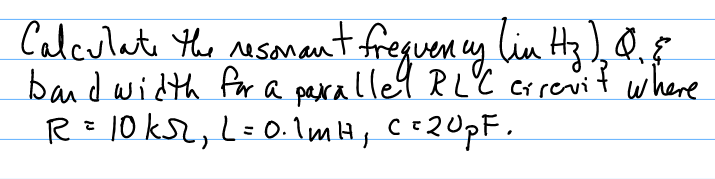 Calculate the resonant frequency (in Hz), Q, &
bandwidth for a parallel RLC circuit where
R = 10 kΩ, L = 0.1mH, C = 20pF.